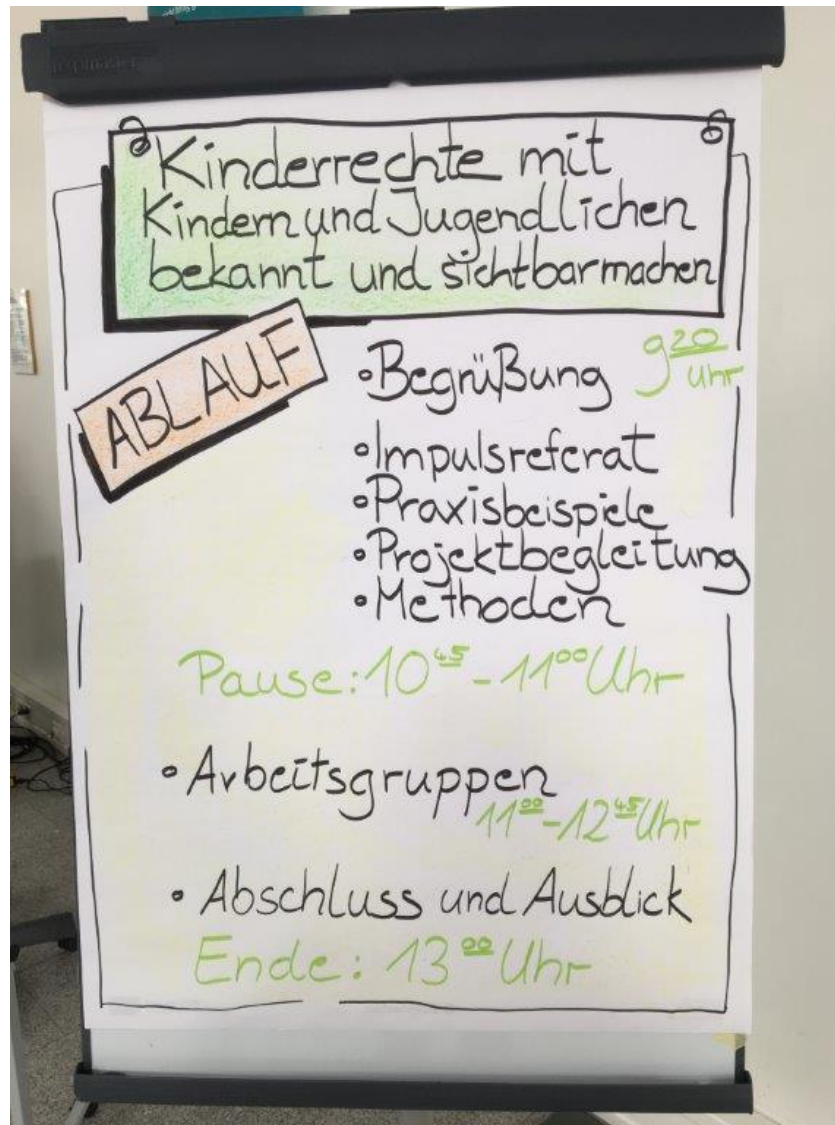 Kinderrechte mit
Kindern und Jugendlichen
bekannt und sichtbar machen
ABLAUF
• Begrüßung 9²⁰ Uhr
• Impulsreferat
• Praxisbeispiele
• Projektbegleitung
• Methoden
Pause: 10⁴⁵ - 11⁰⁰ Uhr
• Arbeitsgruppen
11⁰⁰ - 12⁴⁵ Uhr
• Abschluss und Ausblick
Ende: 13⁰⁰ Uhr